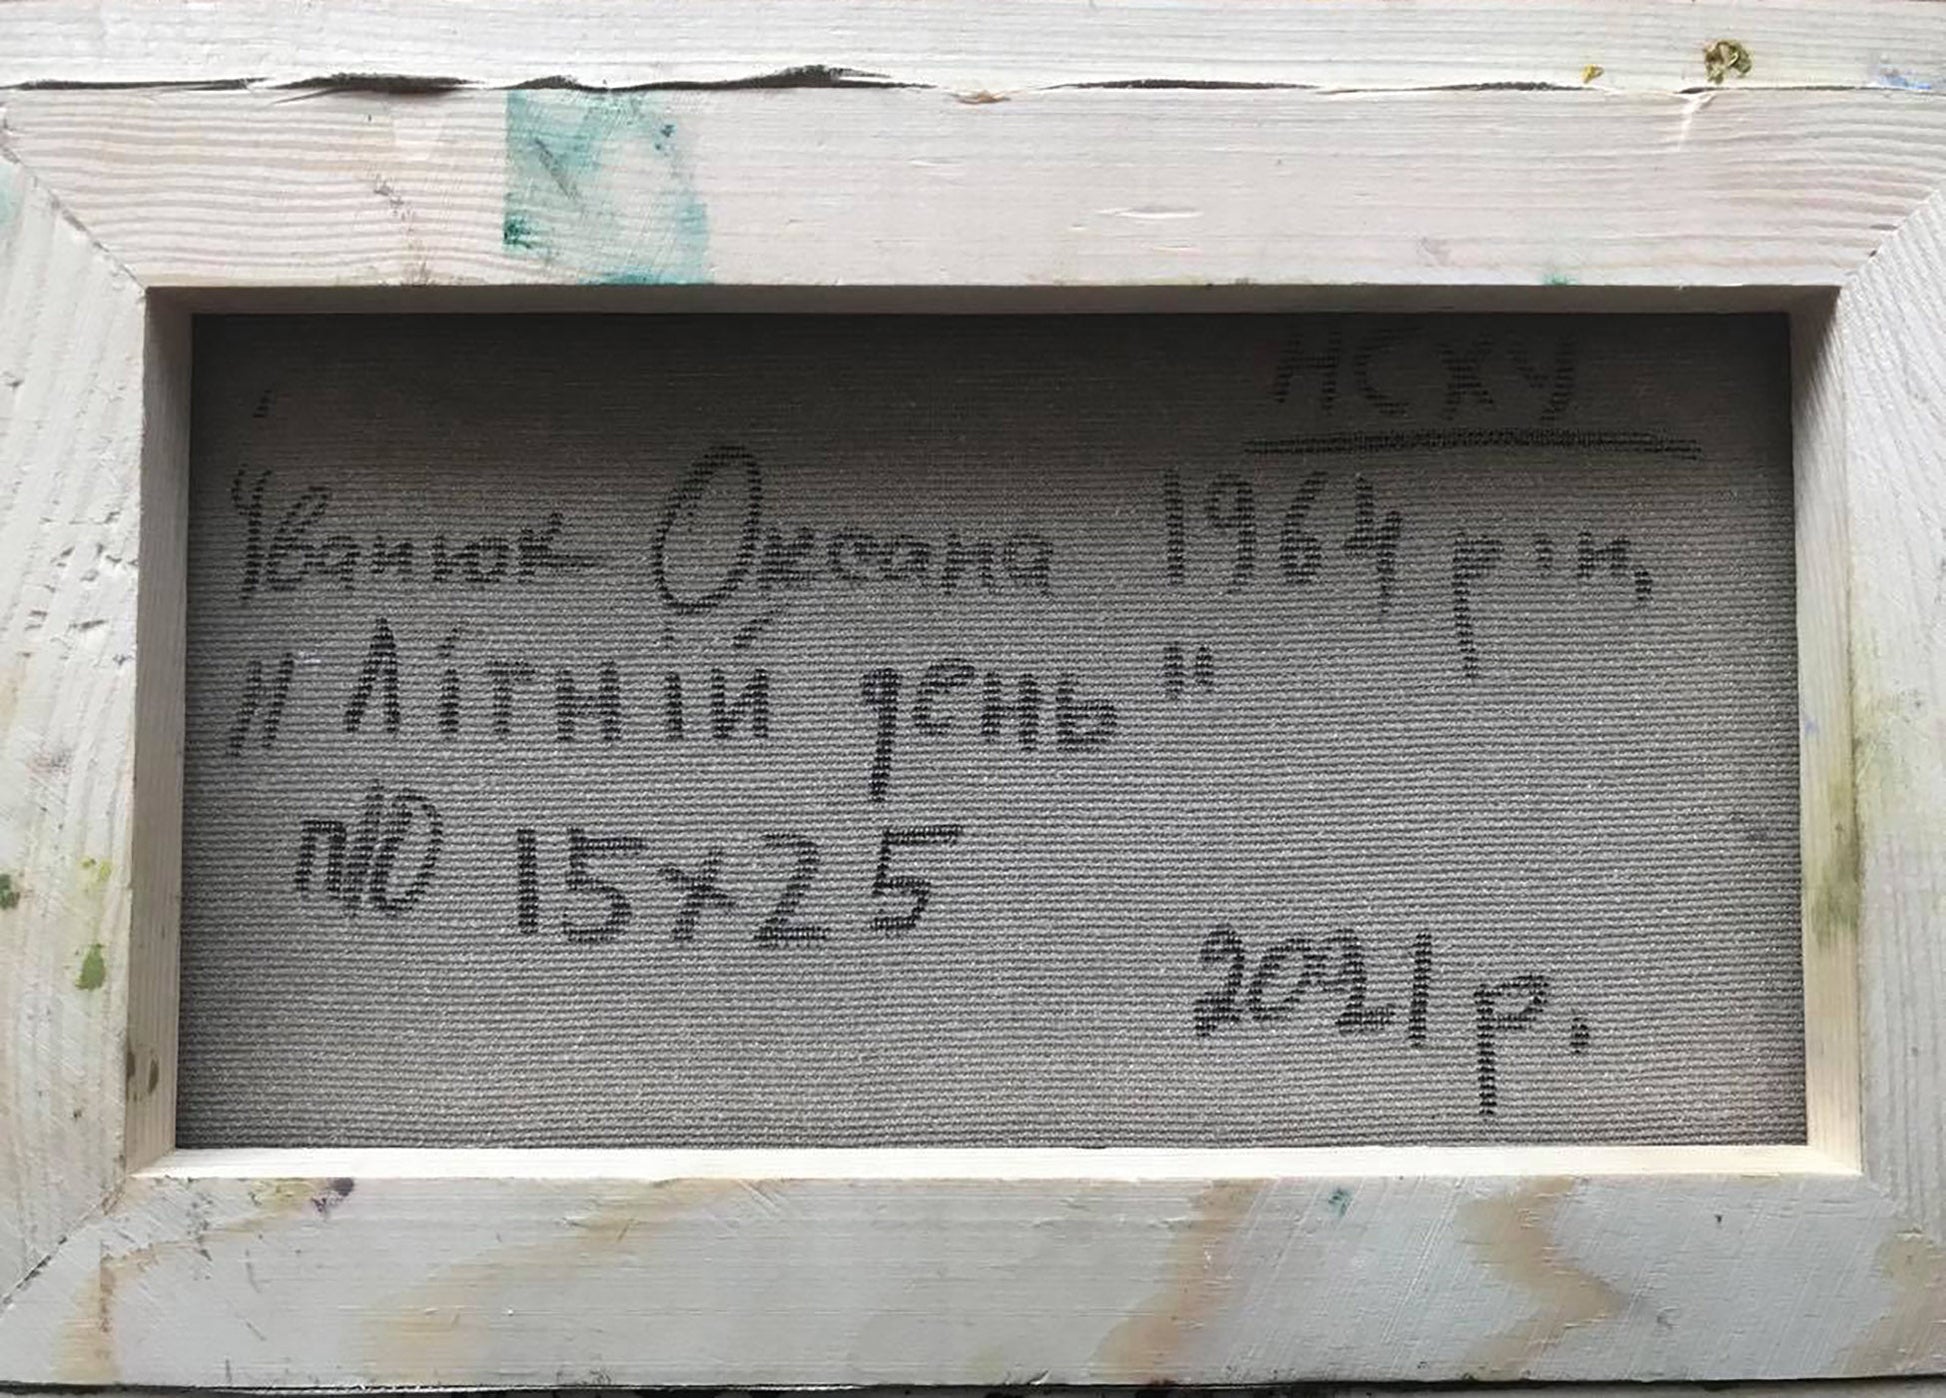 НСХУ
Іванюк Оксана 1964 р.н.
"Літній день"
п/О 15х25
2021 р.